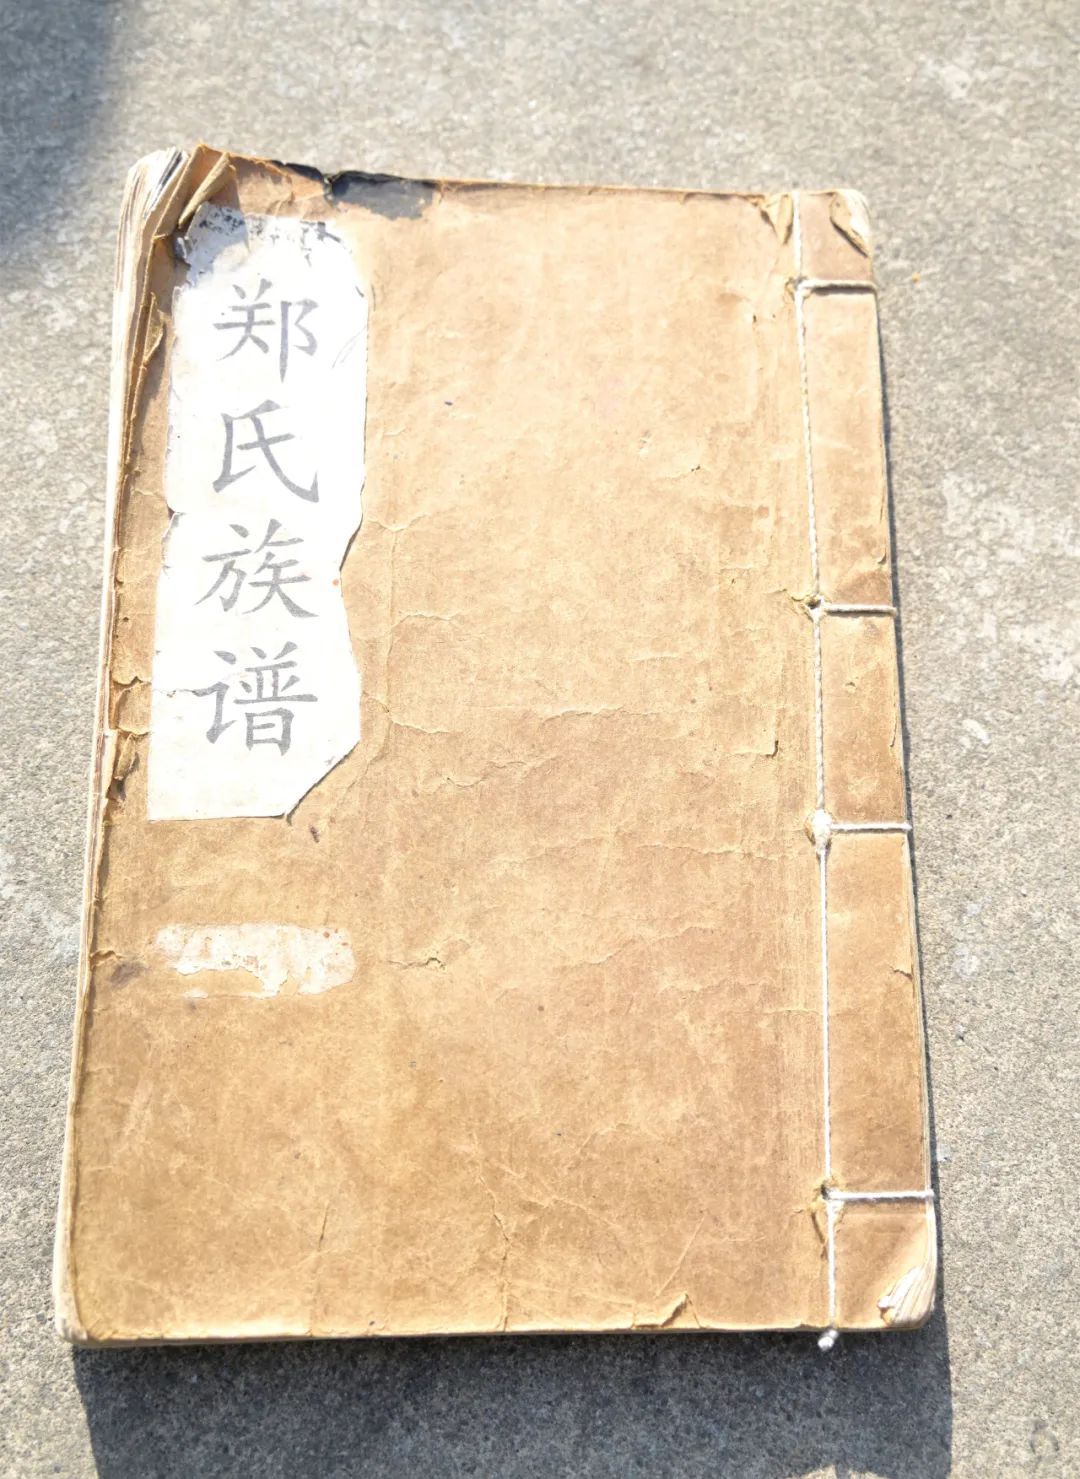 郑氏族谱